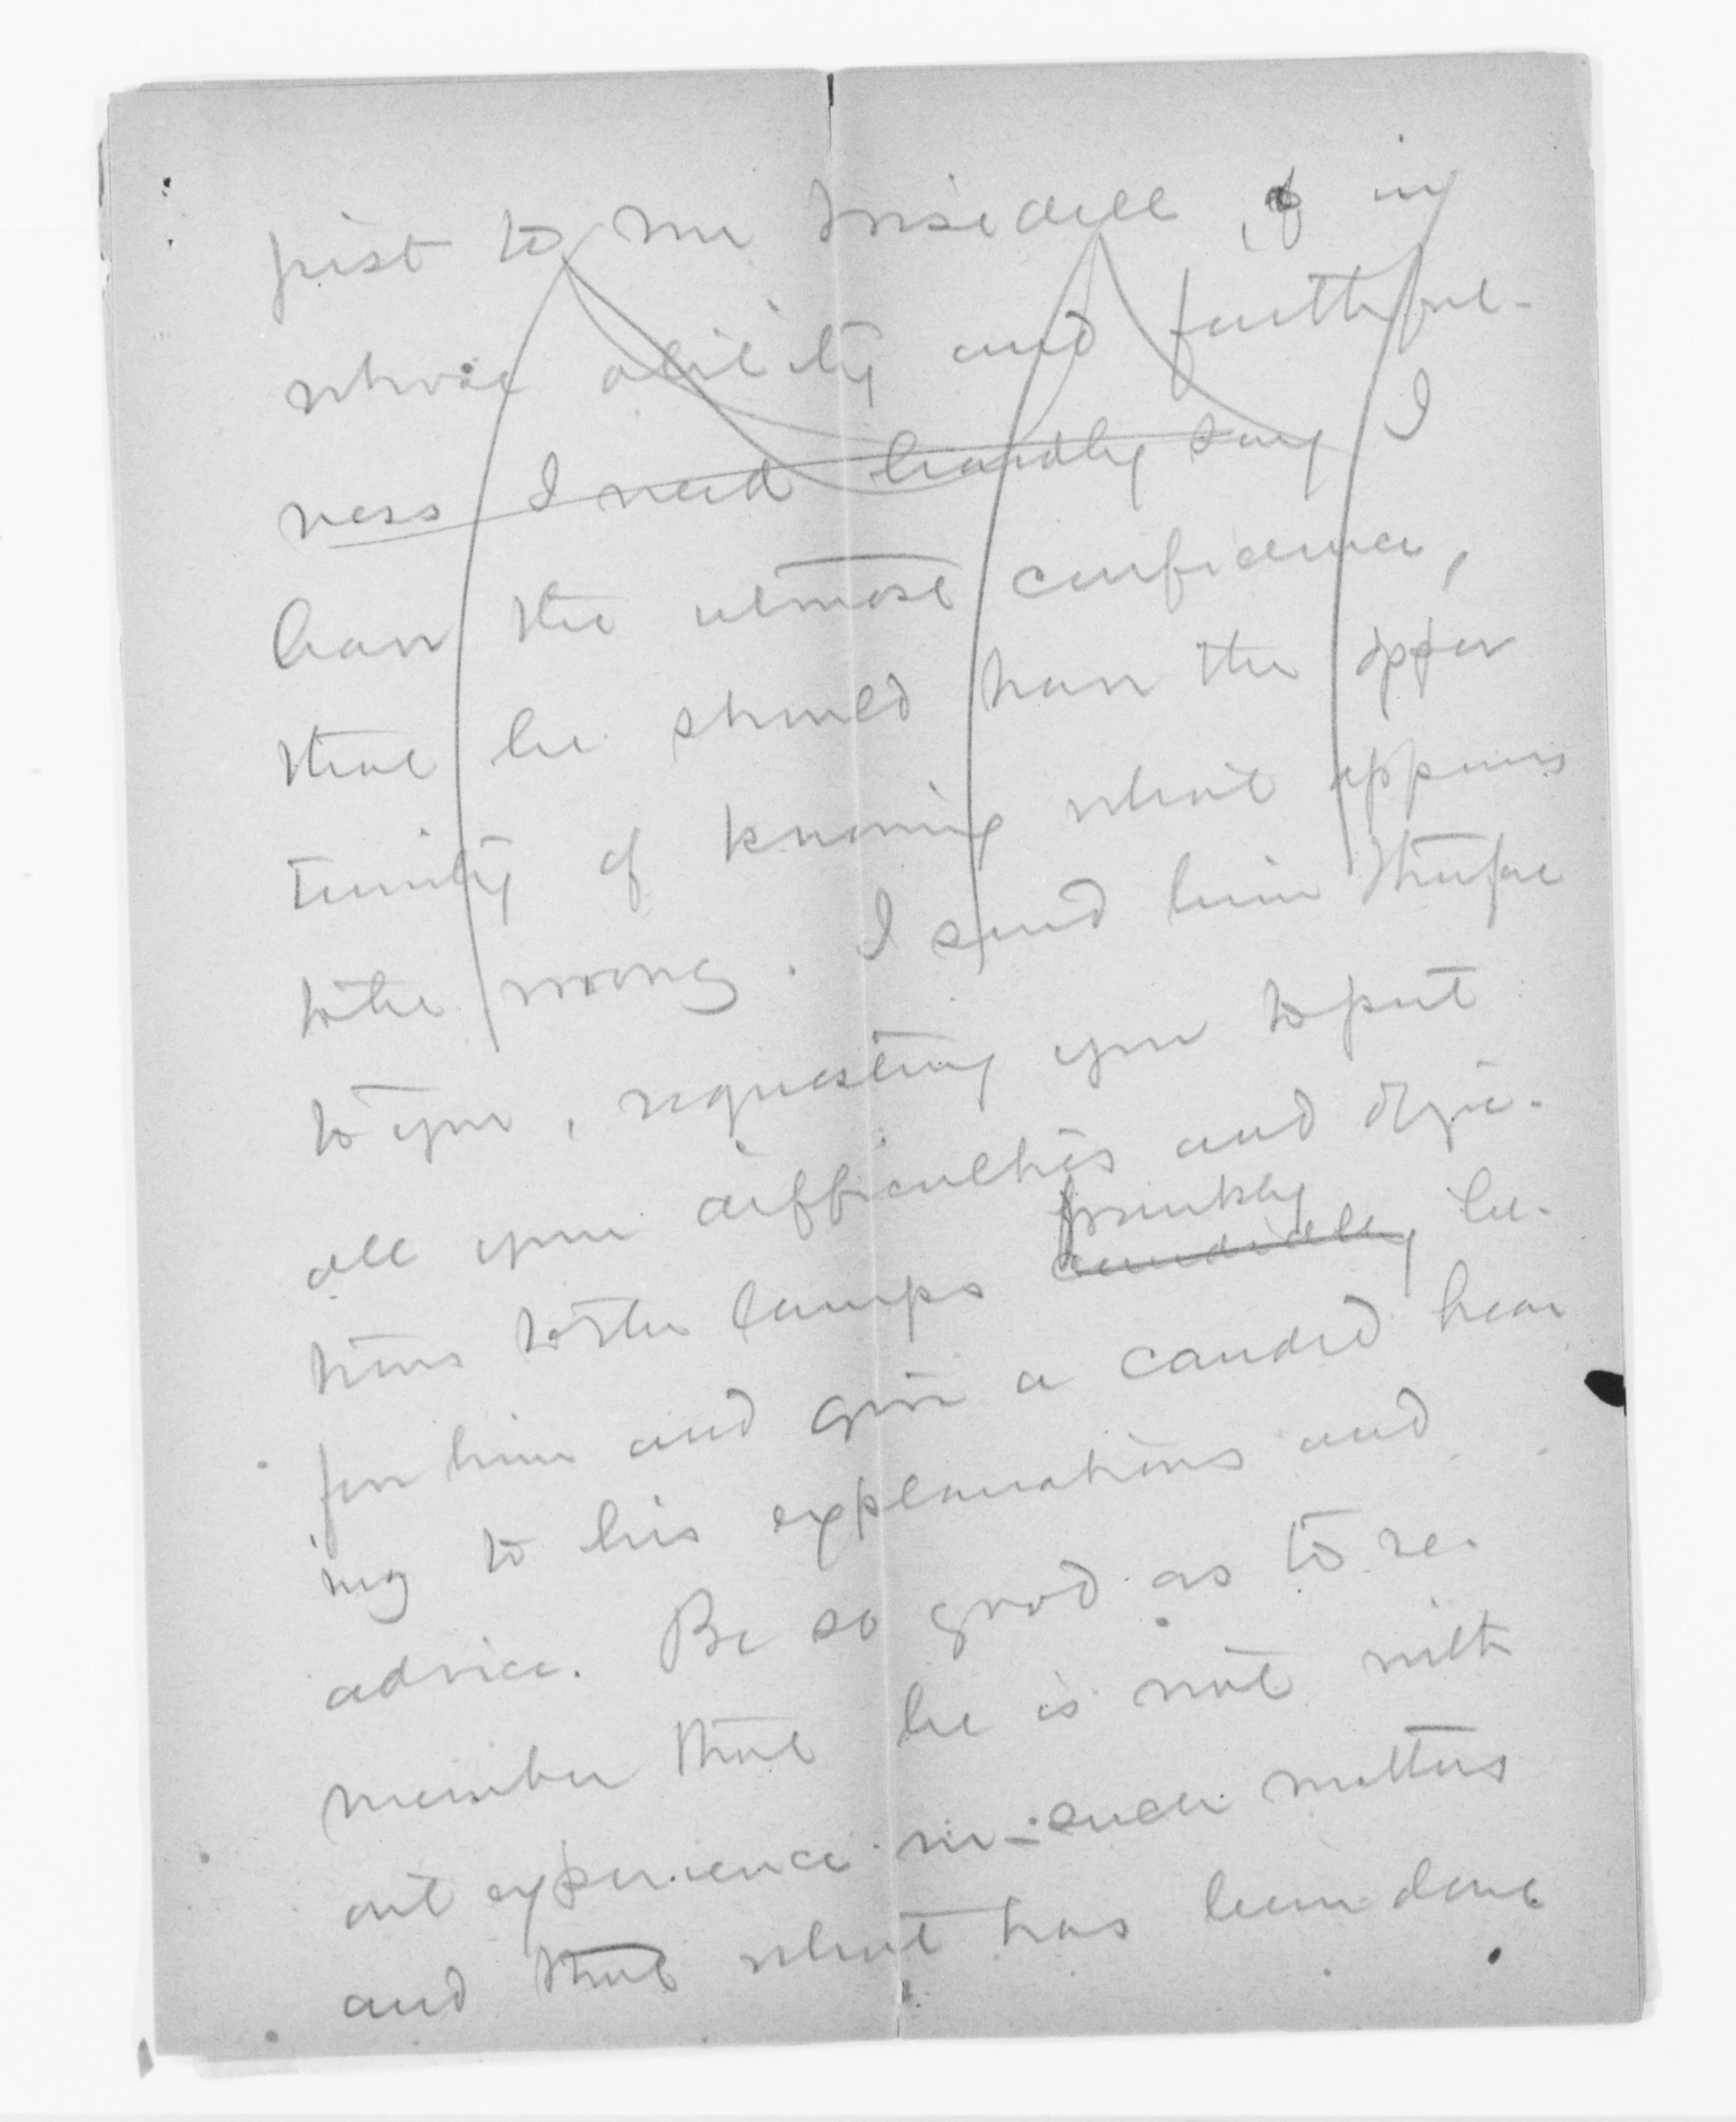 just to Mr Trisdell, of in
whose ability and faithful-
ness I need hardly say I
have the utmost confidence,
that he should have the oppor
tunity of knowing what appears
to the wrong. I send him therefore
to you, requesting you to put
all your difficulties and objec-
frankly
tions to the lamps candidly be-
fore him and give a candid hear
ing to his explanations and
advice. Be so good as to re-
member that he is not with
out experience in such matters
and that what has been done